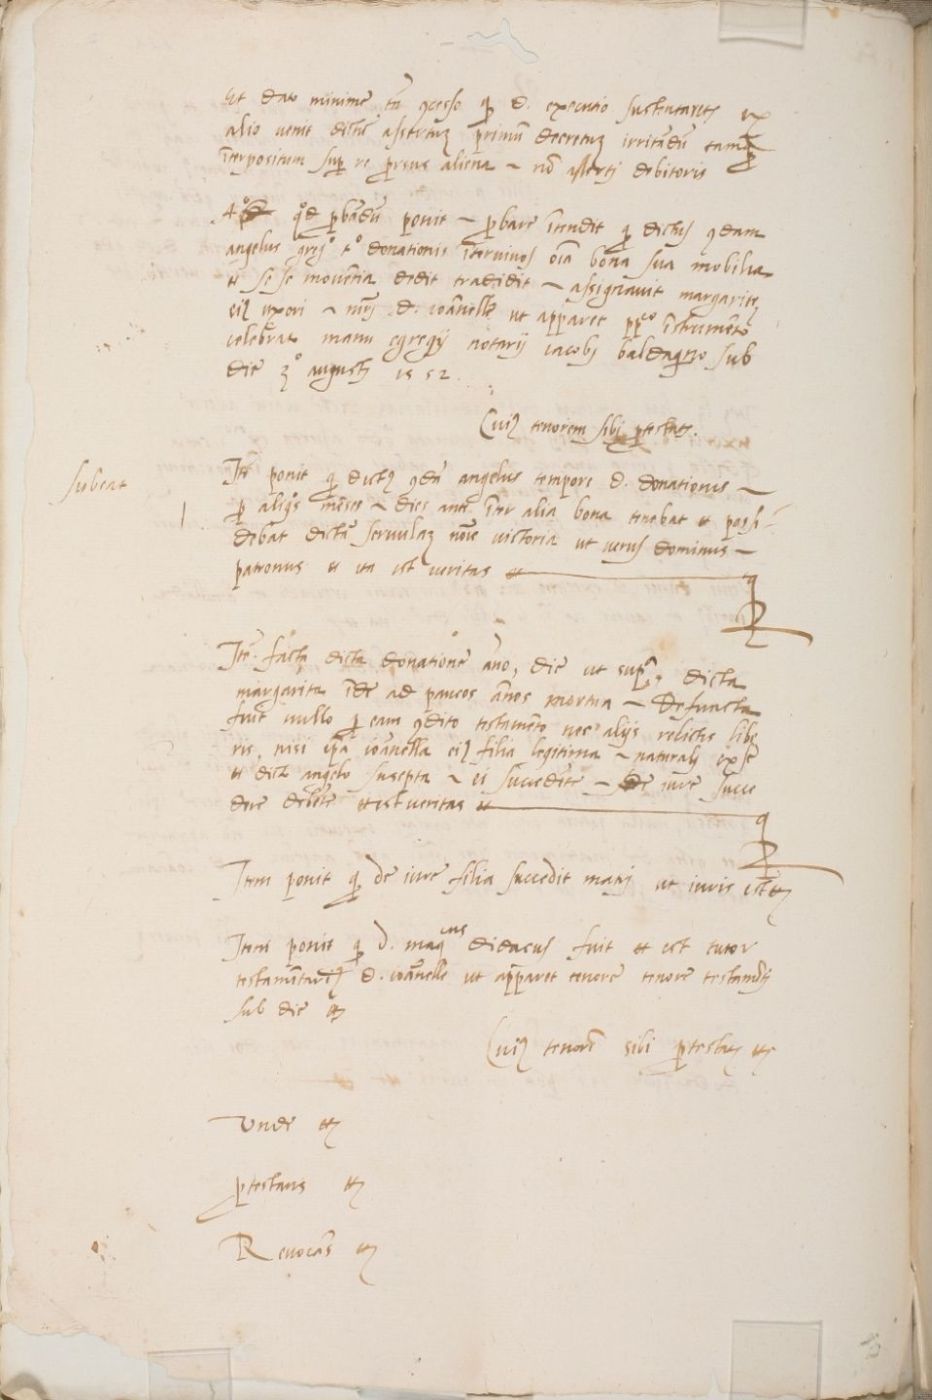 Et dato minime tn̄ ꝯcesso ꝙ d. executio sustentaretr ex
alio venit dictū assertuȝ primū decretuȝ irritādū tamqȝ
īterpositum sup re prsus aliena ~ nō asserti debitoris
4º qd̄ ꝓbādū ponit ~ ꝓbare ītendit ꝙ dictus ꝯdam
angelus tº donationis īter vivos oīa bona sua mobilia
et se se moventia dedit tradidit ~ assignavit margarite
eiꝰ uxori ~ mrī d. ioānelle ut apparet īstrumēto
celebrato manu egregij notarij iacobi baldagno sub
die 3º augusti 1552
Cuiꝰ tenorem sibi ꝓtestatr.
subeat
Itē ponit ꝙ dictꝰ ꝯdā angelus tempore d. donationis ~
ꝑ aliqͦs mēses ~ dies ante īter alia bona tenebat et possi-
debat dictā servulaȝ noīe victoria ut verus dominus ~
patronus et ita est veritas et
Itē facta dicta donatione āno, die ut supra, dicta
margarita īde ad paucos ānos mortua ~ defuncta
fuit nullo ꝑ eam ꝯdito testamēto nec alijs relictis libe
ris, nisi ipā ioānella eiꝰ filia legitima ~ naturali ex se
et dicto angelo suscepta ~ ei succedēte ~ de iure succe
dere debēte et est veritas et
Item ponit ꝙ de iure filia succedit matri ut iuris est etc
Item ponit ꝙ d. magcus didacus fuit et est tutor
testamētariꝰ d. ioānelle ut apparet tenore tenore testamēti
sub die etc
Cuiꝰ tenorē sibi ꝓtestatr etc
Unde etc
ꝓtestans etc
Revocās etc